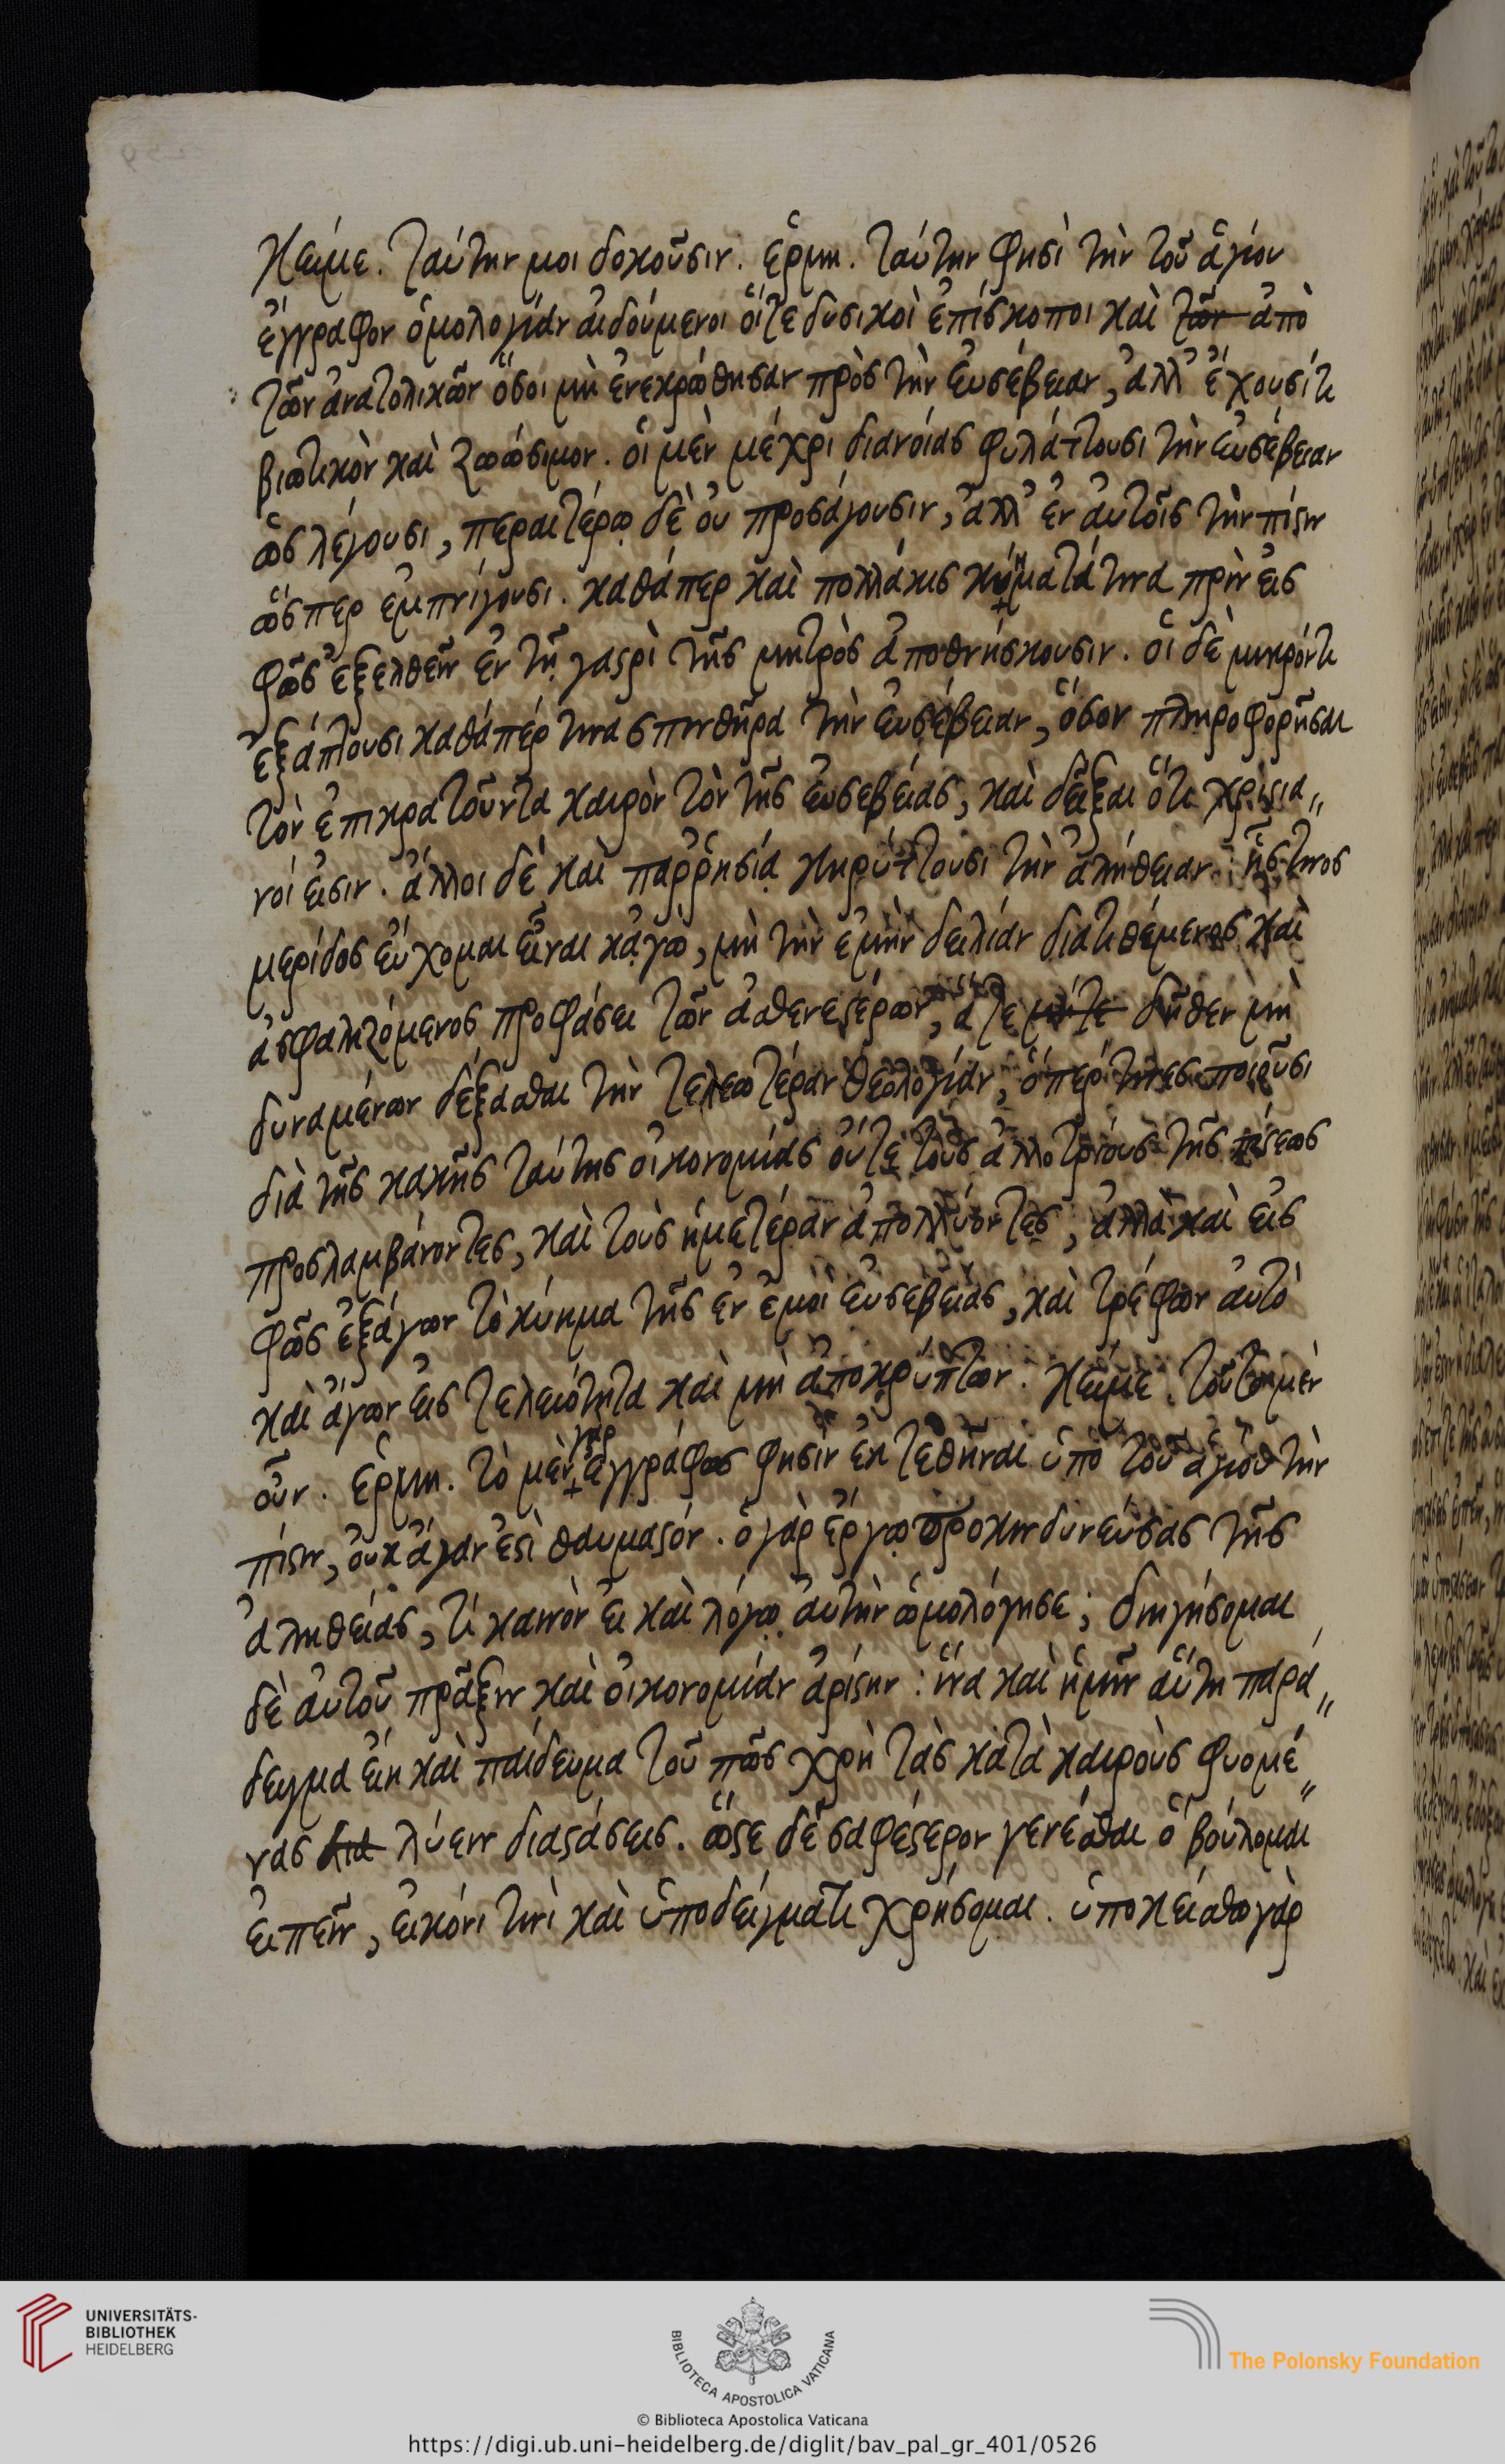 Κείμε. Ταύτην μοι δοκοῦσιν. ἑρμη. ταύτην φησὶ τὴν τοῦ ἁγίου
ἔγγραφον ὁμολογίαν αἰδούμενοι οἵτε δυσικοὶ ἐπίσκοποι καὶ τῶν ἀπὸ
τῶν ἀνατολικῶν ὅσοι μὴ ἐνεκρώθησαν πρὸς τὴν εὐσέβειαν, ἀλλ' ἔχουσί τι
βιωτικὸν καὶ ζωώσιμον. οἱ μὲν μέχρι διανοίας φυλάττουσι τὴν εὐσέβειαν
ὡς λέγουσι, περαιτέρω δὲ οὐ προσάγουσιν, ἀλλ' ἐν αὐτοῖς τὴν πίστιν
ὥσπερ ἐμπνίγουσι. καθάπερ καὶ πολλάκις κυήματά τινα πρὶν εἰς
φῶς ἐξελθεῖν ἐν τῇ γαστρὶ τῆς μητρὸς ἀποθνήσκουσιν. οἱ δὲ μικρόν τι
ἐξάπτουσι καθάπέρ τινα σπινθῆρα τὴν εὐσέβειαν, ὅσον πληροφορῆσαι
τὸν ἐπικρατοῦντα καιρὸν τὸν τῆς εὐσεβείας, καὶ δεῖξαι ὅτι χριστια〃
νοί εἰσιν. ἄλλοι δὲ καὶ παῤῥησίᾳ κηρύττουσι τὴν ἀλήθειαν· ἧς τινος
μερίδος εὔχομαι εἶναι κᾀγὼ, μὴ τὴν ἐμὴν δειλίαν διατιθέμενος καὶ
ἀσφαλιζόμενος προφάσει τῶν ἀσθενεστέρων, ἅτε μήτε δῆθεν μὴ
δυναμένων δέξασθαι τὴν τελεωτέραν θεολογίαν, ὅπερ τινες ποιοῦσι
διὰ τῆς κακῆς ταύτης οἰκονομίας οὔτε τοὺς ἀλλοτρίους τῆς πίστεως
προσλαμβάνοντες, καὶ τοὺς ἡμετέραν ἀπολλύοντες, ἀλλὰ καὶ εἰς
φῶς ἐξάγων τὸ κύημα τῆς ἐν ἐμοὶ εὐσεβείας, καὶ τρέφων αὐτὸ
καὶ ἄγων εἰς τελειότητα καὶ μὴ ἀποκρύπτων. Κείμε. τοῦτο μὲν
οὖν. ἑρμη. τὸ μὲν γὰρ ἐγγράφως φησὶν ἐκτεθῆναι ὑπὸ τοῦ ἁγίου τὴν
πίστιν, οὐκ ἄγαν ἐστὶ θαυμαστόν. ὁ γὰρ ἔργῳ προκινδυνεύσας τῆς
ἀληθείας, τί καινὸν εἰ καὶ λόγῳ αὐτὴν ὡμολόγησε; διηγήσομαι
δὲ αὐτοῦ πρᾶξιν καὶ οἰκονομίαν ἀρίστην: ἵνα καὶ ἡμῖν αὕτη παρά〃
δειγμα εἴη καὶ παίδευμα τοῦ πῶς χρὴ τὰς κατὰ καιροὺς φυομέ〃
νας δια λύειν διαστάσεις. ὥστε δὲ σαφέστερον γενέσθαι ὃ βούλομαι
εἰπεῖν, εἰκόνι τινὶ καὶ ὑποδείγματι χρήσομαι. ὑποκείσθω γὰρ
UNIVERSITÄTS-
BIBLIOTHEK
HEIDELBERG
BIBLIOTECA APOSTOLICA VATICANA
The Polonsky Foundation
© Biblioteca Apostolica Vaticana
https://digi.ub.uni-heidelberg.de/diglit/bav_pal_gr_401/0526